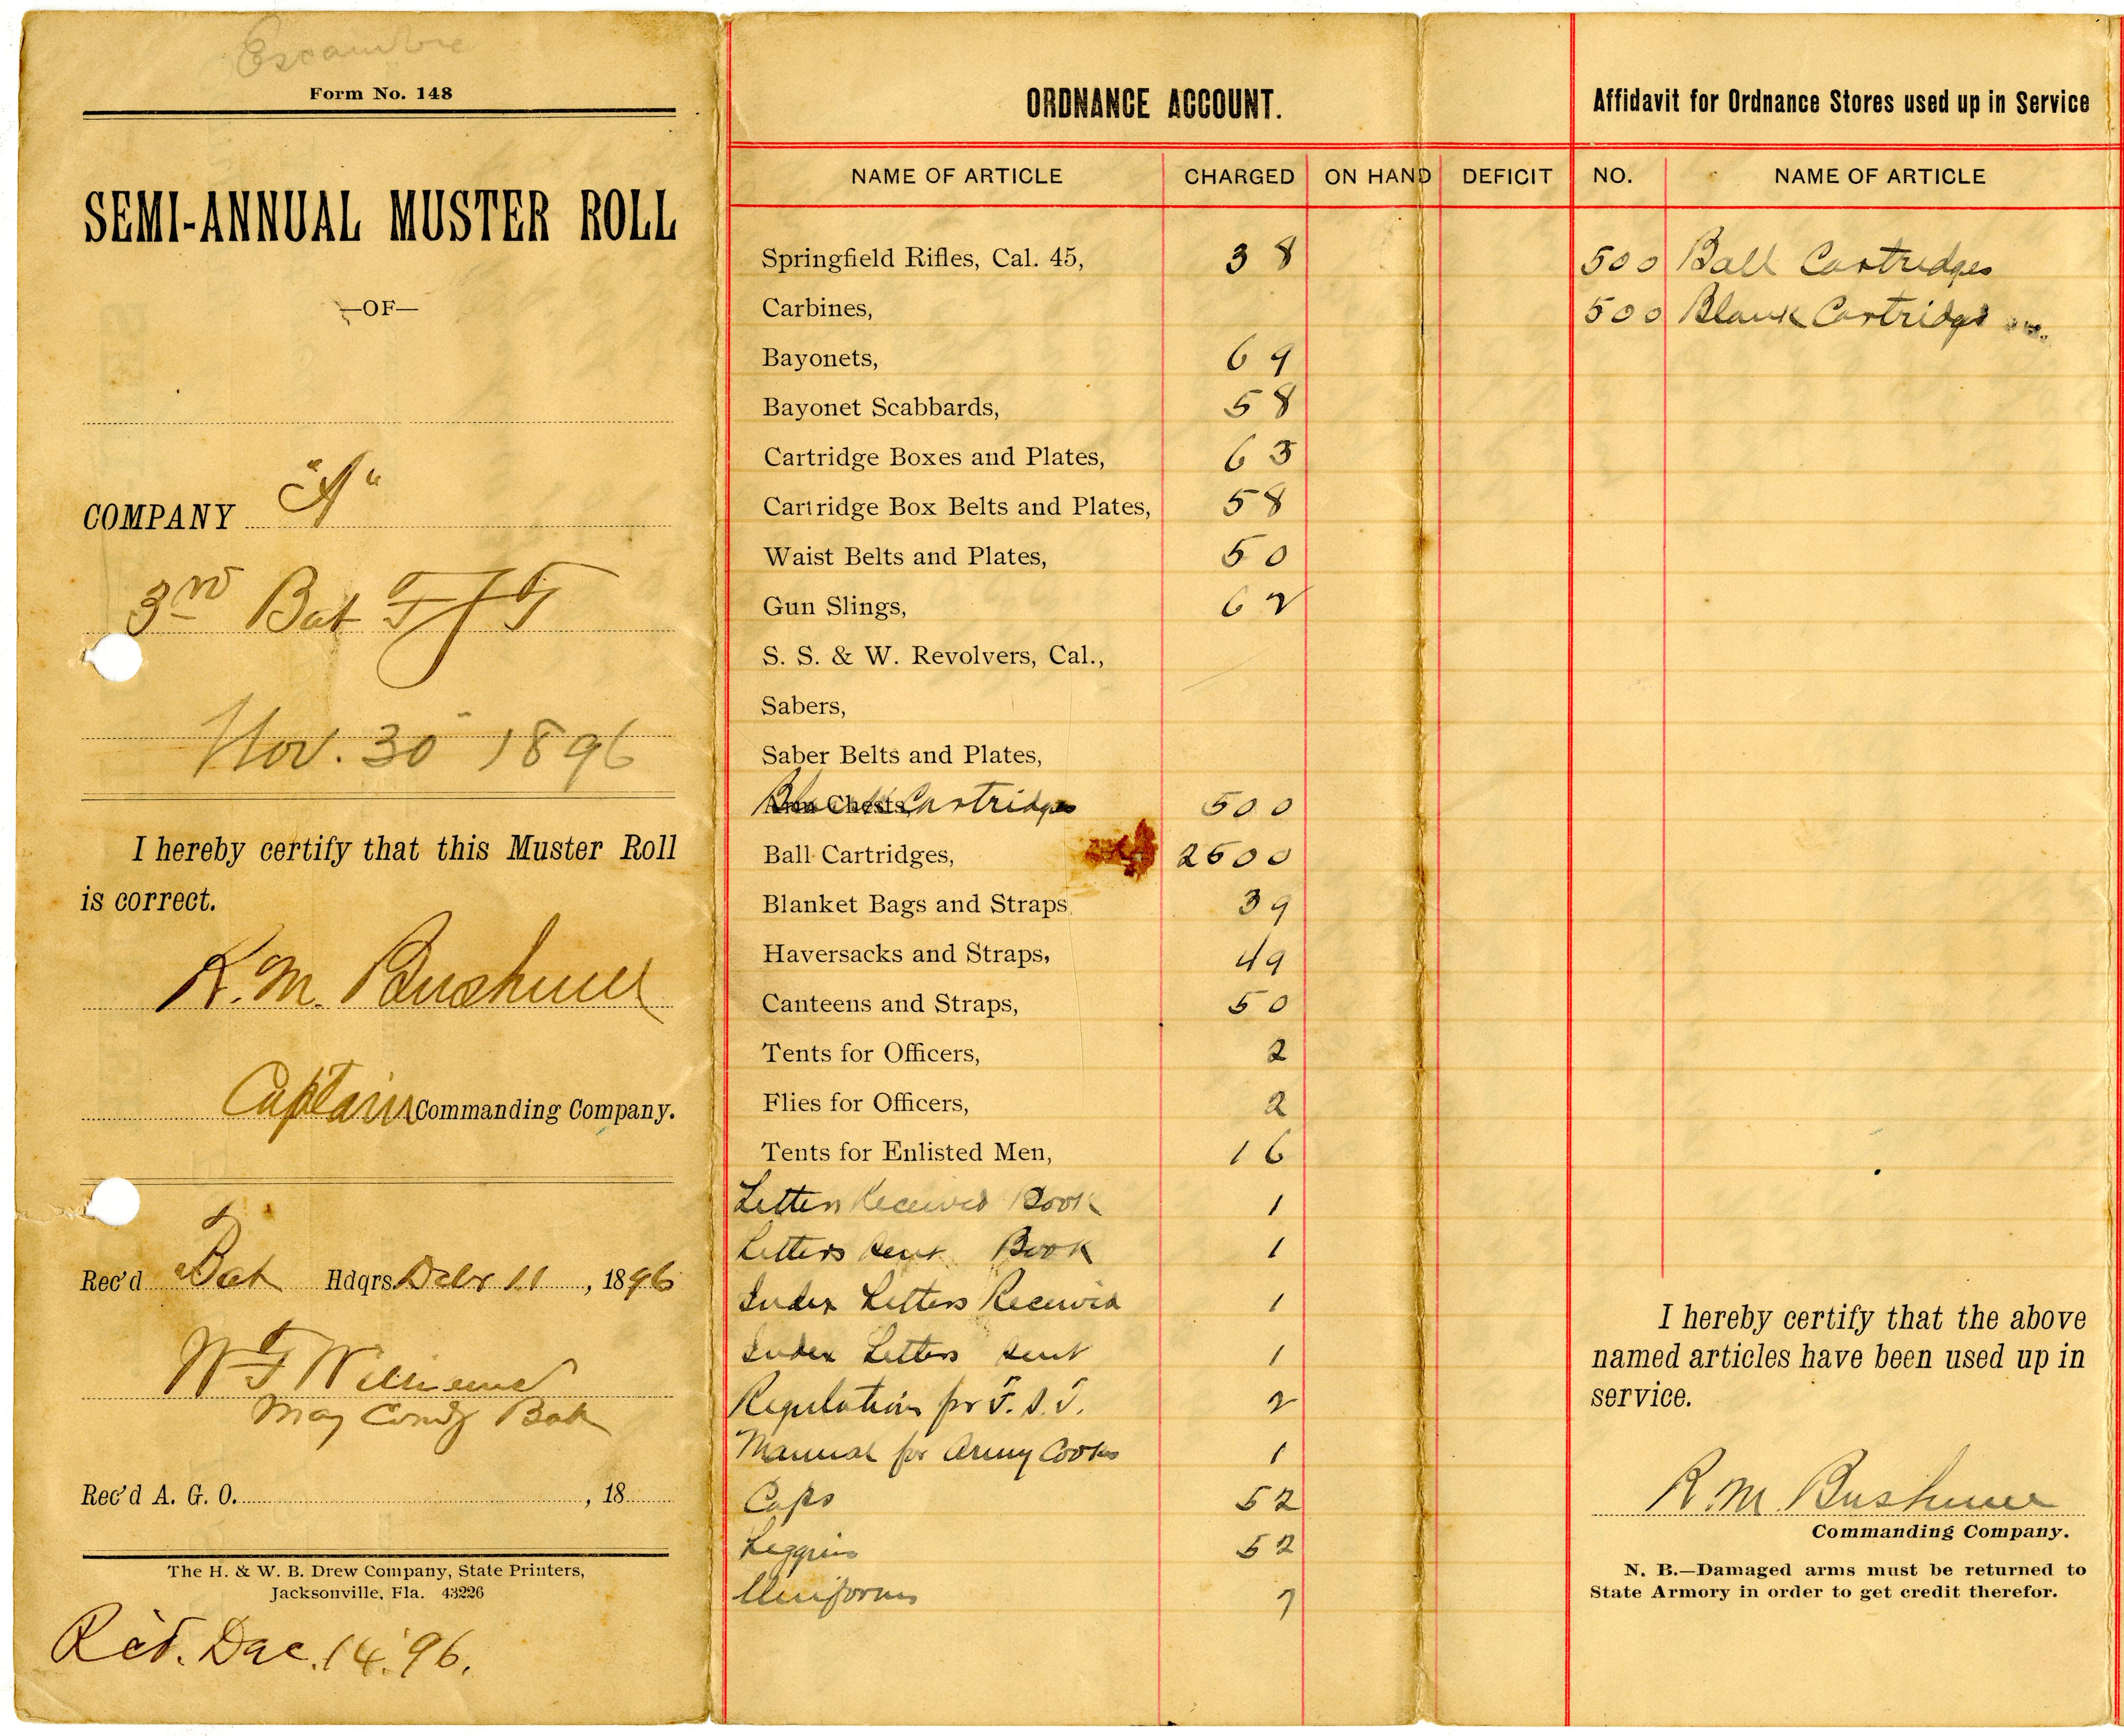 Escambia
Form No. 148
SEMI-ANNUAL MUSTER ROLL
—OF—
COMPANY "A"
3rd Bat F S T
Nov. 30 1896
I hereby certify that this Muster Roll
is correct.
R. M. Bushnell
Captain Commanding Company.
Rec'd Bat Hdqrs. Decbr 11, 1896
W F Williams
Maj Comdg Bat
Rec'd A. G. O. , 18
The H. & W. B. Drew Company, State Printers,
Jacksonville, Fla. 43226
Rcd. Dec. 14. '96.
ORDNANCE ACCOUNT.
NAME OF ARTICLE CHARGED ON HAND DEFICIT
Springfield Rifles, Cal. 45, 38
Carbines,
Bayonets, 69
Bayonet Scabbards, 58
Cartridge Boxes and Plates, 63
Cartridge Box Belts and Plates, 58
Waist Belts and Plates, 50
Gun Slings, 62
S. S. & W. Revolvers, Cal.,
Sabers,
Saber Belts and Plates,
Arm Chests, Blank Cartridges 500
Ball Cartridges, 2500
Blanket Bags and Straps, 39
Haversacks and Straps, 49
Canteens and Straps, 50
Tents for Officers, 2
Flies for Officers, 2
Tents for Enlisted Men, 16
Letters Received Book 1
Letters Sent Book 1
Index Letters Received 1
Index Letters Sent 1
Regulations for F. S. T. 2
Manual for Army Cooks 1
Caps 52
Leggins 52
Uniforms 7
Affidavit for Ordnance Stores used up in Service
NO. NAME OF ARTICLE
500 Ball Cartridges
500 Blank Cartridges
I hereby certify that the above
named articles have been used up in
service.
R. M. Bushnell
Commanding Company.
N. B.—Damaged arms must be returned to
State Armory in order to get credit therefor.